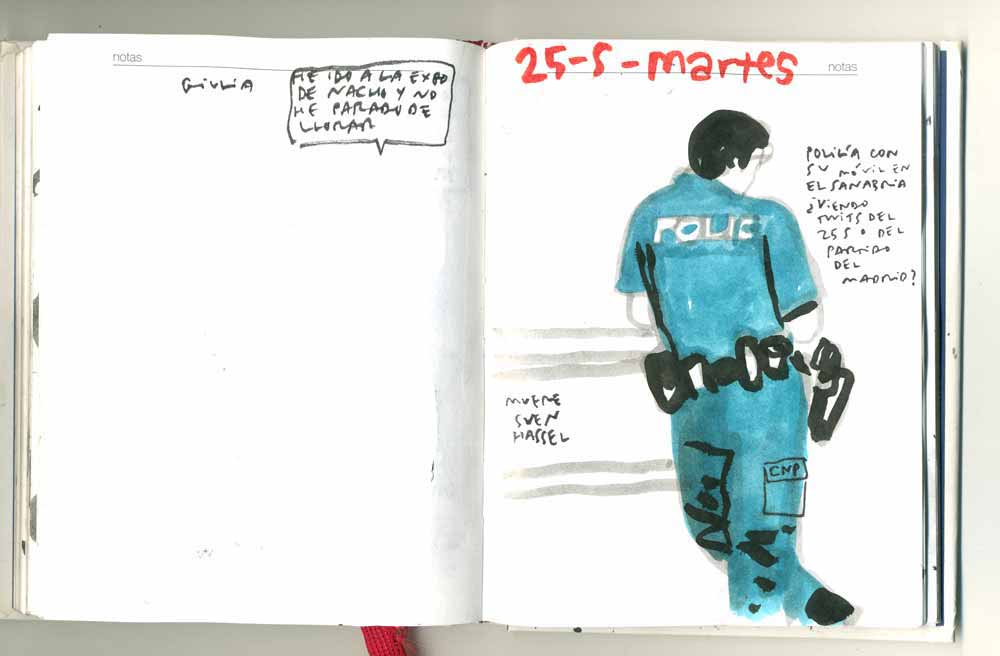 notas
GIULIA
HE IDO A LA EXPO
DE NACHO Y NO
HE PARADO DE
LLORAR
25-S-martes
notas
POLICÍA CON
SU MÓVIL EN
EL SANABRIA
¿VIENDO
TWITS DEL
25S O DEL
PARTIDO
DEL
MADRID?
POLIC
MUERE
SVEN
HASSEL
CNP